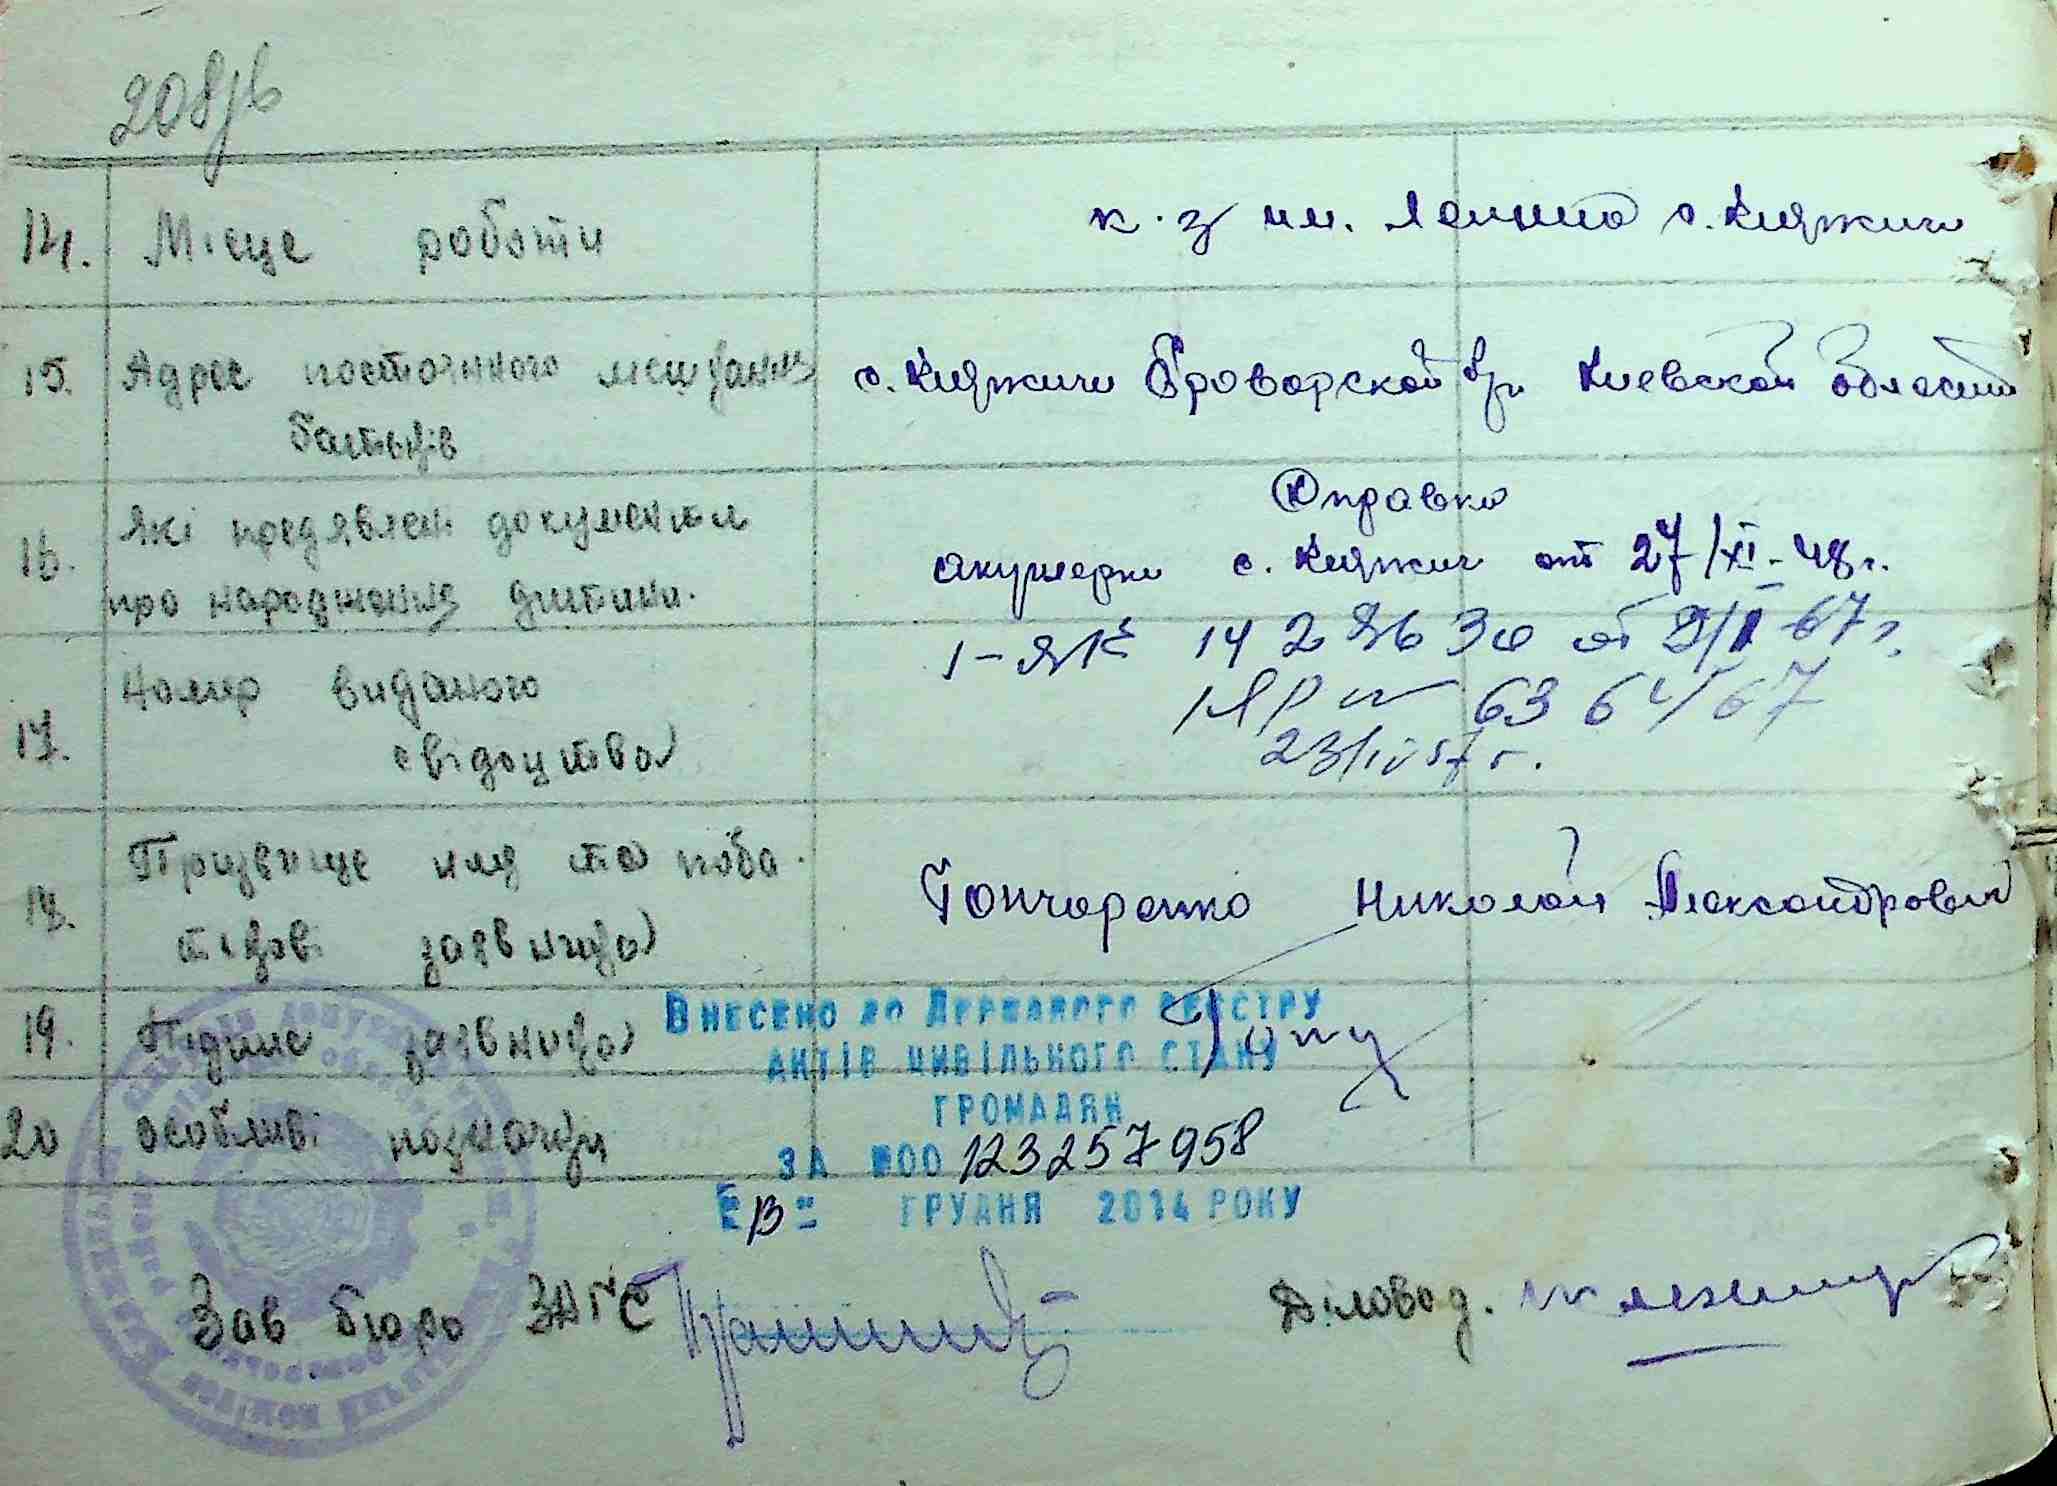 208зв
14. Місце роботи к.з им. Ленина с. Княжичи
15. Адрес постоянного мешкання с. Княжичи Броварской р-н Киевской области
батьків
Справка
16. Які предявлені документи акушерки с. Княжич от 27/XI-48 г.
про народження дитини.
1-ЯК 14 2 30 от 67 г.
17. Номер виданого № 63 64/67
свідоцтва 23/IV 57 г.
18. Прізвище имя та поба- Гончаренко Николай Александрович
тькові заявника
19. Підпис заявника
20 Особливі позначки
Внесено до Державного реєстру
актів цивільного стану
громадян
за №00123257958
"13" грудня 2014 року
Зав бюро ЗАГС Діловод.